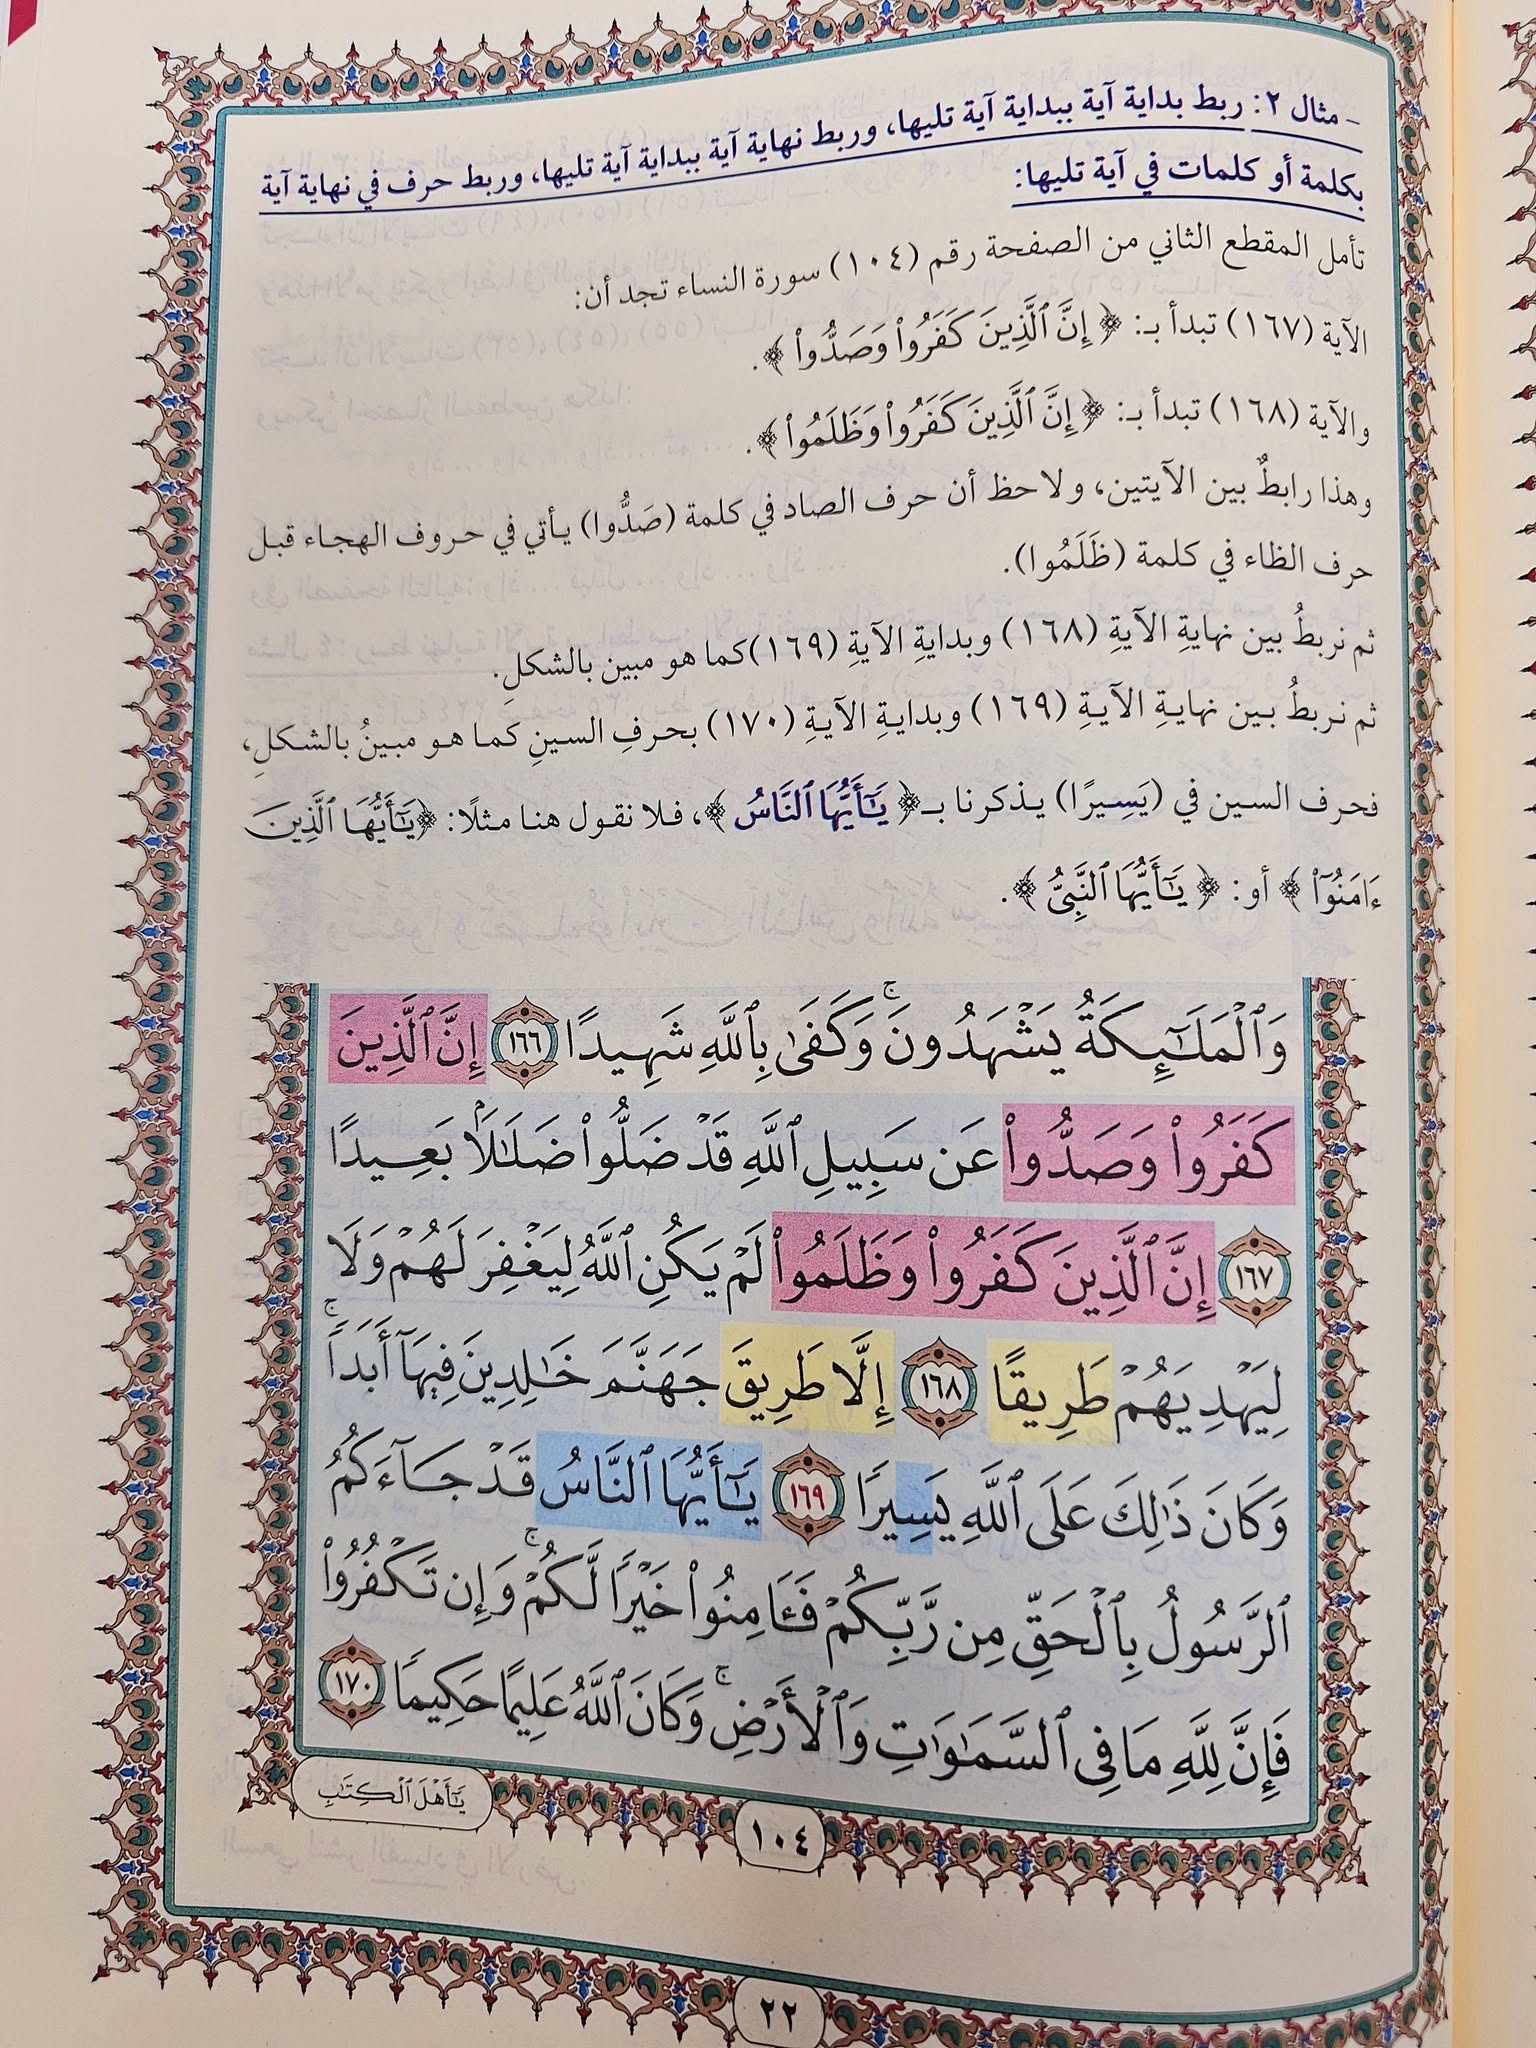 - مثال ٢: ربط بداية آية ببداية آية تليها، وربط نهاية آية ببداية آية تليها، وربط حرف في نهاية آية
بكلمة أو كلمات في آية تليها:
تأمل المقطع الثاني من الصفحة رقم (١٠٤) سورة النساء تجد أن:
الآية (١٦٧) تبدأ بـ: ﴿ إِنَّ ٱلَّذِينَ كَفَرُواْ وَصَدُّواْ ﴾.
والآية (١٦٨) تبدأ بـ: ﴿ إِنَّ ٱلَّذِينَ كَفَرُواْ وَظَلَمُواْ ﴾.
وهذا رابطٌ بين الآيتين، ولاحظ أن حرف الصاد في كلمة (صَدُّوا) يأتي في حروف الهجاء قبل
حرف الظاء في كلمة (ظَلَمُوا).
ثم نربطُ بين نهايةِ الآيةِ (١٦٨) وبدايةِ الآيةِ (١٦٩) كما هو مبين بالشكلِ.
ثم نربطُ بين نهايةِ الآيةِ (١٦٩) وبدايةِ الآيةِ (١٧٠) بحرفِ السينِ كما هو مبينُ بالشكلِ،
فحرف السين في (يَسِيرًا) يذكرنا بـ﴿ يَٰٓأَيُّهَا ٱلنَّاسُ ﴾، فلا نقول هنا مثلًا: ﴿يَٰٓأَيُّهَا ٱلَّذِينَ
ءَامَنُوٓاْ ﴾ أو: ﴿ يَٰٓأَيُّهَا ٱلنَّبِىُّ ﴾.
وَٱلْمَلَٰٓئِكَةُ يَشْهَدُونَ ۚ وَكَفَىٰ بِٱللَّهِ شَهِيدًا ١٦٦ إِنَّ ٱلَّذِينَ
كَفَرُواْ وَصَدُّواْ عَن سَبِيلِ ٱللَّهِ قَدْ ضَلُّواْ ضَلَٰلَۢا بَعِيدًا
١٦٧ إِنَّ ٱلَّذِينَ كَفَرُواْ وَظَلَمُواْ لَمْ يَكُنِ ٱللَّهُ لِيَغْفِرَ لَهُمْ وَلَا
لِيَهْدِيَهُمْ طَرِيقًا ١٦٨ إِلَّا طَرِيقَ جَهَنَّمَ خَٰلِدِينَ فِيهَآ أَبَدًا ۚ
وَكَانَ ذَٰلِكَ عَلَى ٱللَّهِ يَسِيرًا ١٦٩ يَٰٓأَيُّهَا ٱلنَّاسُ قَدْ جَآءَكُمُ
ٱلرَّسُولُ بِٱلْحَقِّ مِن رَّبِّكُمْ فَـَٔامِنُواْ خَيْرًا لَّكُمْ ۚ وَإِن تَكْفُرُواْ
فَإِنَّ لِلَّهِ مَا فِى ٱلسَّمَٰوَٰتِ وَٱلْأَرْضِ ۚ وَكَانَ ٱللَّهُ عَلِيمًا حَكِيمًا ١٧٠
يَٰٓأَهْلَ ٱلْكِتَٰبِ
١٠٤
٢٢